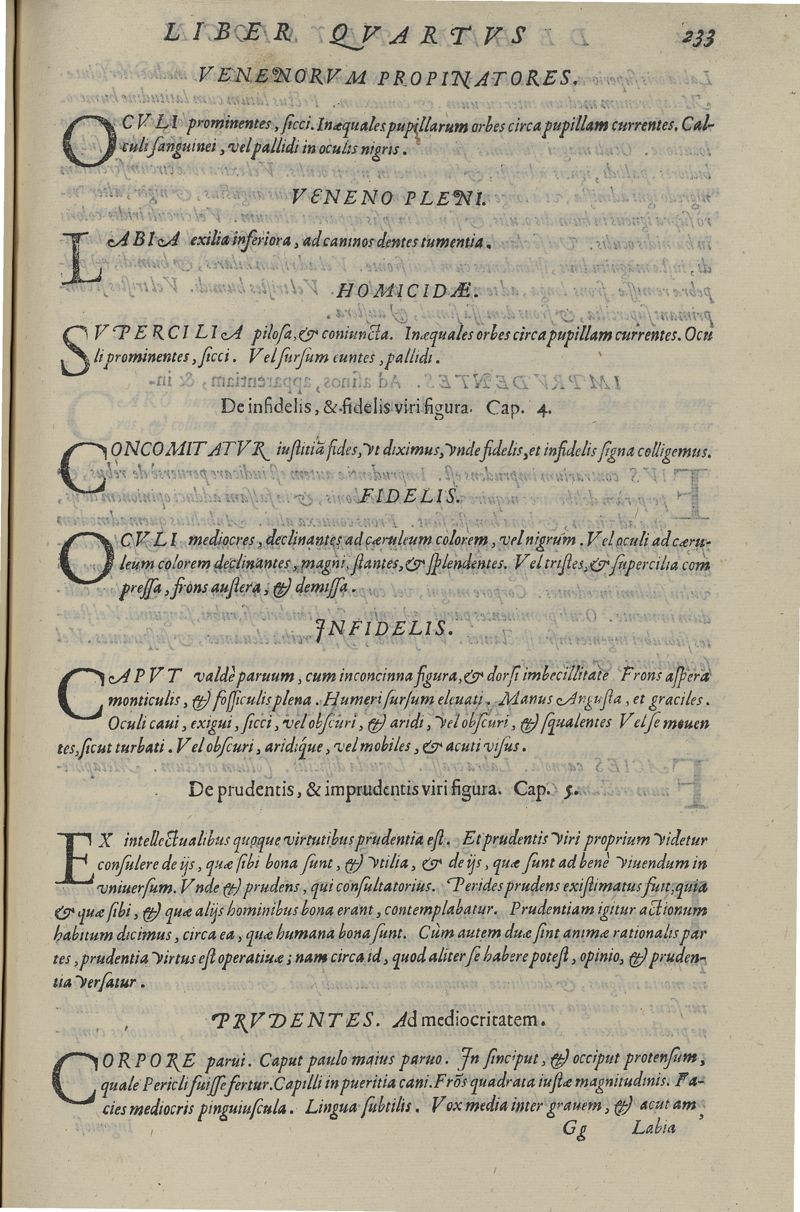 LIBER QVARTVS 233
VENENORVM PROPINATORES.
OCVLI prominentes, ſicci. Inæquales pupillarum orbes circa pupillam currentes. Cal-
culi ſanguinei, vel pallidi in oculis nigris.
VENENO PLENI.
LABIA exilia inferiora, ad caninos dentes tumentia.
HOMICIDÆ.
SVPERCILIA piloſa, & coniuncta. Inæquales orbes circa pupillam currentes. Ocu
li prominentes, ſicci. Vel ſurſum euntes, pallidi.
De infidelis, & fidelis viri figura. Cap. 4.
CONCOMITATVR iuſtitiã fides, vt diximus, vnde fidelis, et infidelis ſigna colligemus.
FIDELIS.
OCVLI mediocres, declinantes ad cæruleum colorem, vel nigrum. Vel oculi ad cæru-
leum colorem declinantes, magni, ſtantes, & ſplendentes. Vel triſtes, & ſupercilia com
preſſa, frons auſtera, & demiſſa.
INFIDELIS.
CAPVT valdè paruum, cum inconcinna figura, & dorſi imbecillitate Frons aſpera
monticulis, & foſſiculis plena. Humeri ſurſum eleuati. Manus Anguſta, et graciles.
Oculi caui, exigui, ſicci, vel obſcuri, & aridi, vel obſcuri, & ſqualentes Vel ſe mouen
tes, ſicut turbati. Vel obſcuri, aridiq́ue, vel mobiles, & acuti viſus.
De prudentis, & imprudentis viri figura. Cap. 5.
EX intellectualibus quoque virtutibus prudentia eſt. Et prudentis viri proprium videtur
conſulere de ijs, quæ ſibi bona ſunt, & vtilia, & de ijs, quæ ſunt ad benè viuendum in
vniuerſum. Vnde & prudens, qui conſultatorius. Perides prudens exiſtimatus fuit, quia
& quæ ſibi, & quæ alijs hominibus bona erant, contemplabatur. Prudentiam igitur actionum
habitum dicimus, circa ea, quæ humana bona ſunt. Cùm autem duæ ſint animæ rationalis par
tes, prudentia virtus eſt operatiuæ; nam circa id, quod aliter ſe habere poteſt, opinio, & pruden-
tia verſatur.
PRVDENTES. Ad mediocritatem.
CORPORE parui. Caput paulo maius paruo. In ſinciput, & occiput protenſum,
quale Pericli fuiſſe fertur. Capilli in pueritia cani. Frõs quadrata iuſtæ magnitudinis. Fa-
cies mediocris pinguiuſcula. Lingua ſubtilis. Vox media inter grauem, & acutam,
Gg Labia